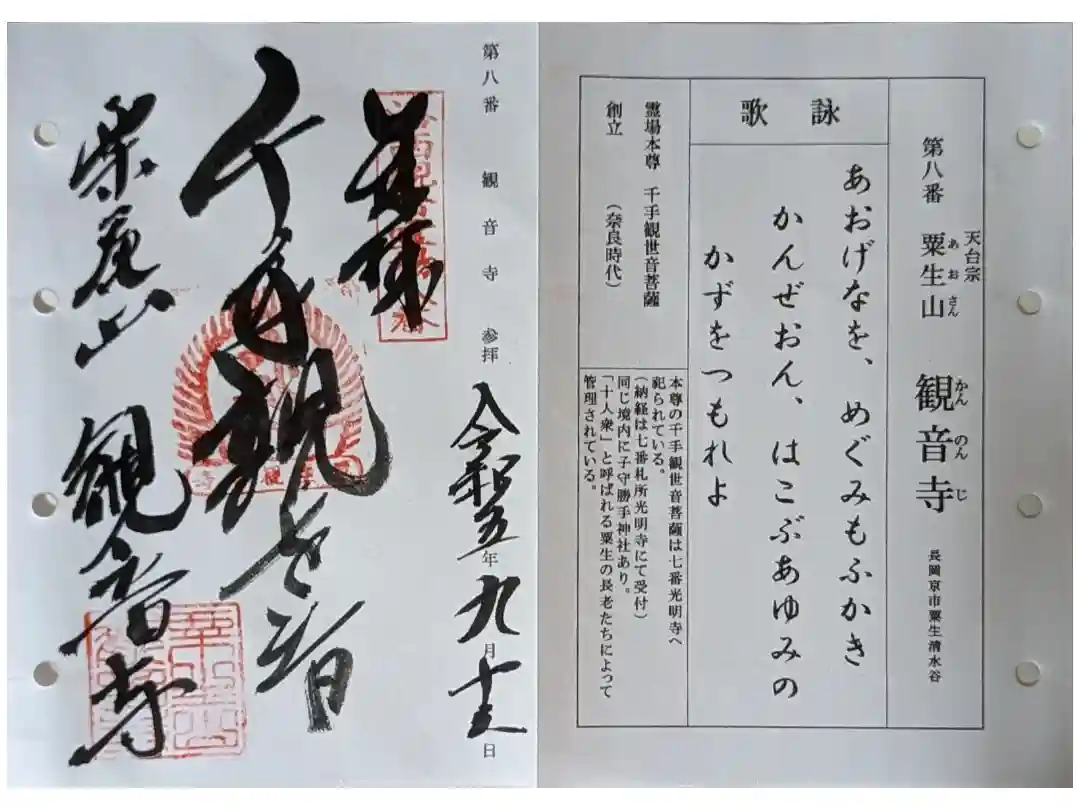 第八番　観音寺　参拝
奉拝
千手観世音
粟生山　観音寺
令和五年九月十五日
第八番　天台宗　粟生山　観音寺　長岡京市粟生清水谷
あおさん　かんのんじ
詠歌
あおげなを、めぐみもふかき
かんぜおん、はこぶあゆみの
かずをつもれよ
霊場本尊　千手観世音菩薩
創立　（奈良時代）
本尊の千手観世音菩薩は七番光明寺へ
祀られている。
（納経は七番札所光明寺にて受付）
同じ境内に子守勝手神社あり。
「十人衆」と呼ばれる粟生の長老たちによって
管理されている。